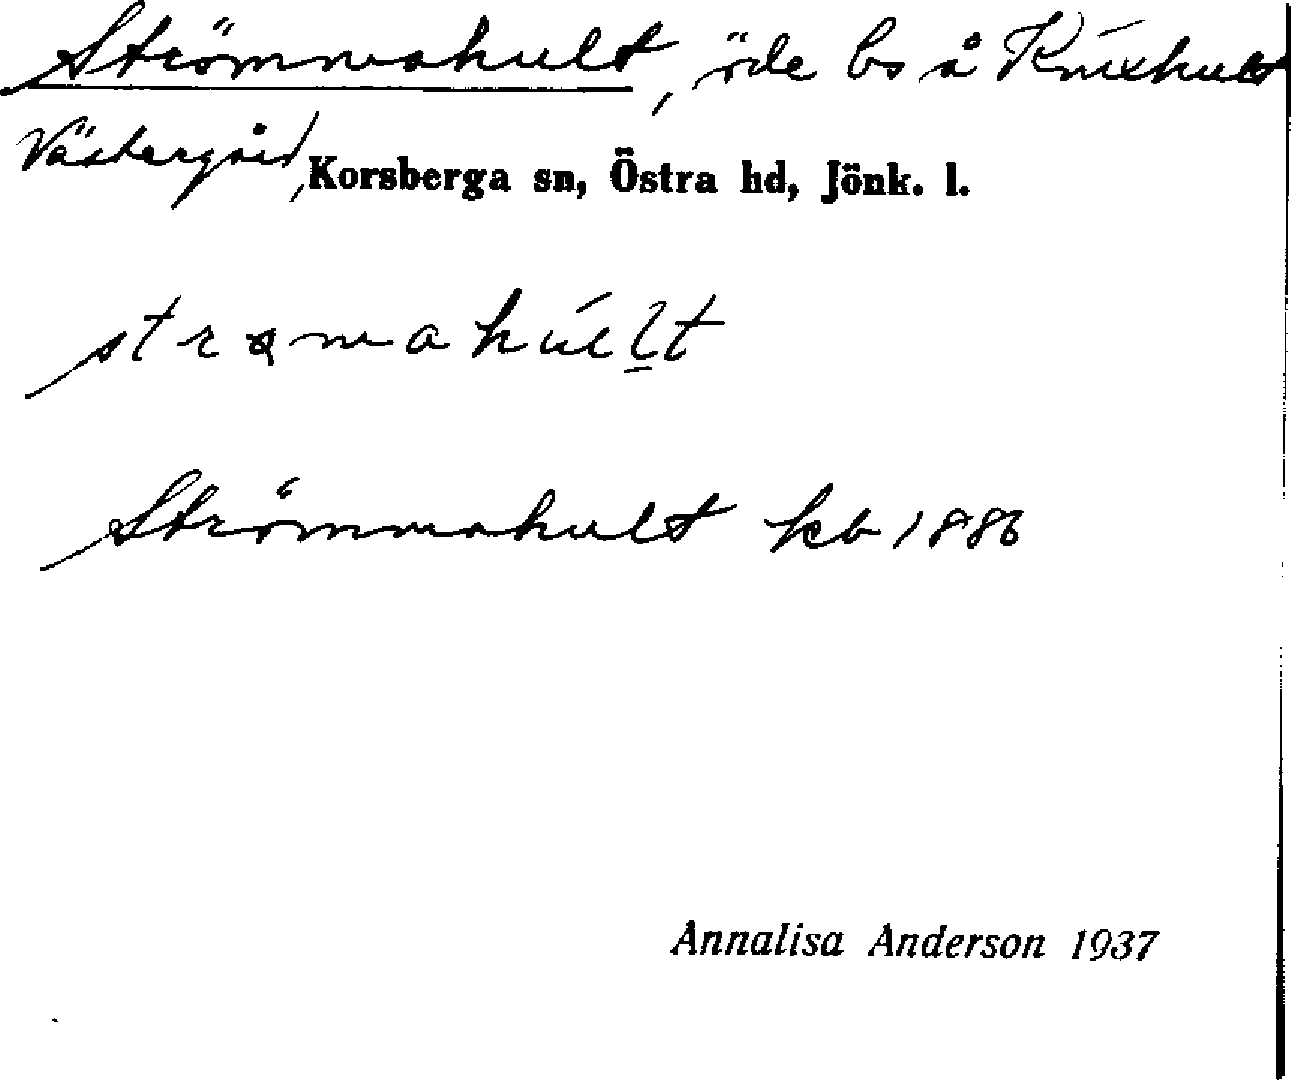 Strömmahult, öde bs å Knixhult
Västergård, Korsberga sn, Östra hd, Jönk. l.
strömahult
Strömmahult kb 1886
Annalisa Anderson 1937